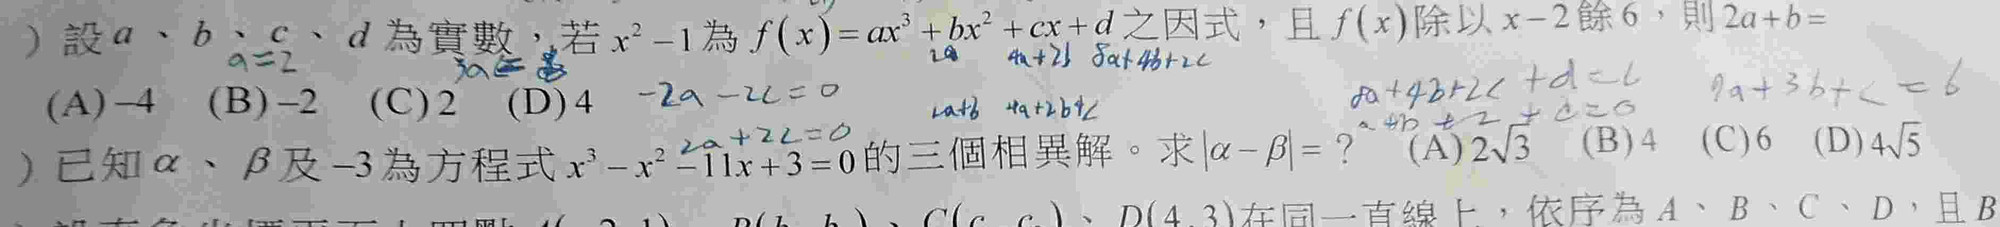 ) 設 a、b、c、d 為實數，若 x² − 1 為 f(x) = ax³ + bx² + cx + d 之因式，且 f(x) 除以 x − 2 餘 6，則 2a + b =
a=2 3a 2a 4a+2b 8a+4b+2c
(A) −4 (B) −2 (C) 2 (D) 4 −2a−2c=0 2a+b 4a+2b+c 8a+4b+2c+d=6 9a+3b+c=6
2a+2c=0
) 已知 α、β 及 −3 為方程式 x³ − x² − 11x + 3 = 0 的三個相異解。求 |α − β| = ? (A) 2√3 (B) 4 (C) 6 (D) 4√5
D(4, 3) 在同一直線上，依序為 A、B、C、D，且 B